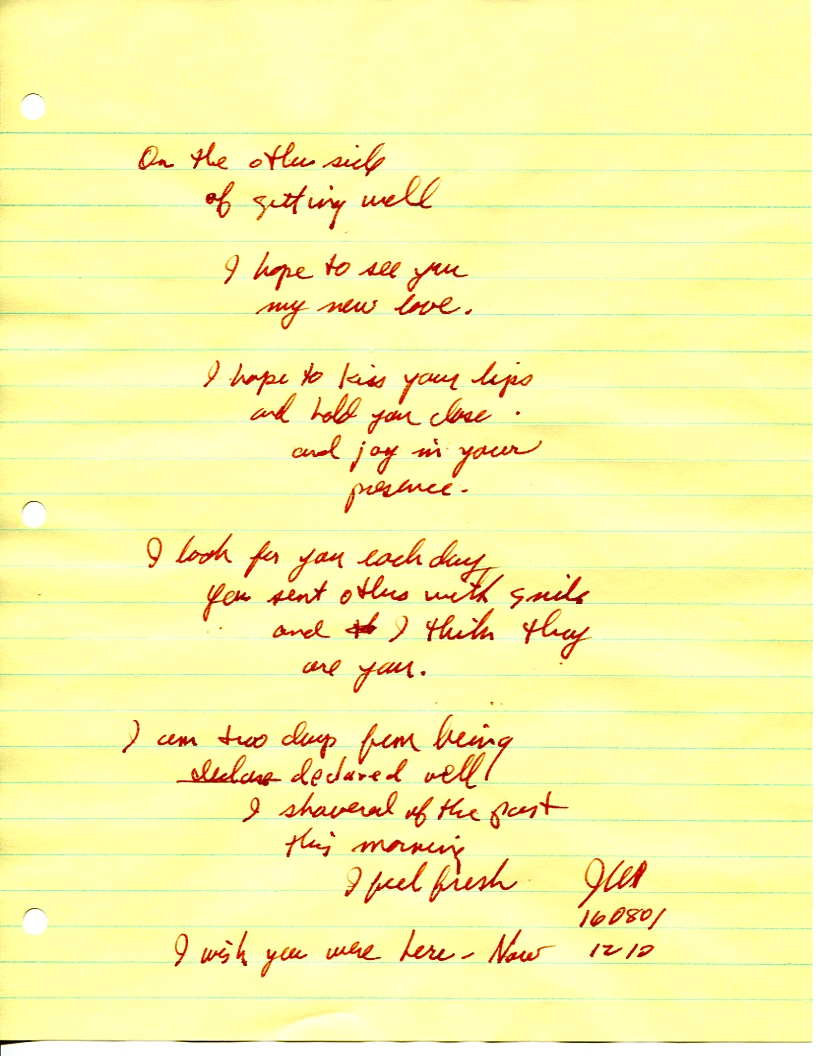 On the other side
of getting well
I hope to see you
my new love.
I hope to kiss your lips
and hold you close.
and joy in your
presence.
I look for you each day,
you sent others with smile
and I think they
are you.
I am two days from being
declare declared well
I shavered of the past
this morning
I feel fresh
160801
I wish you were here - Now
1210